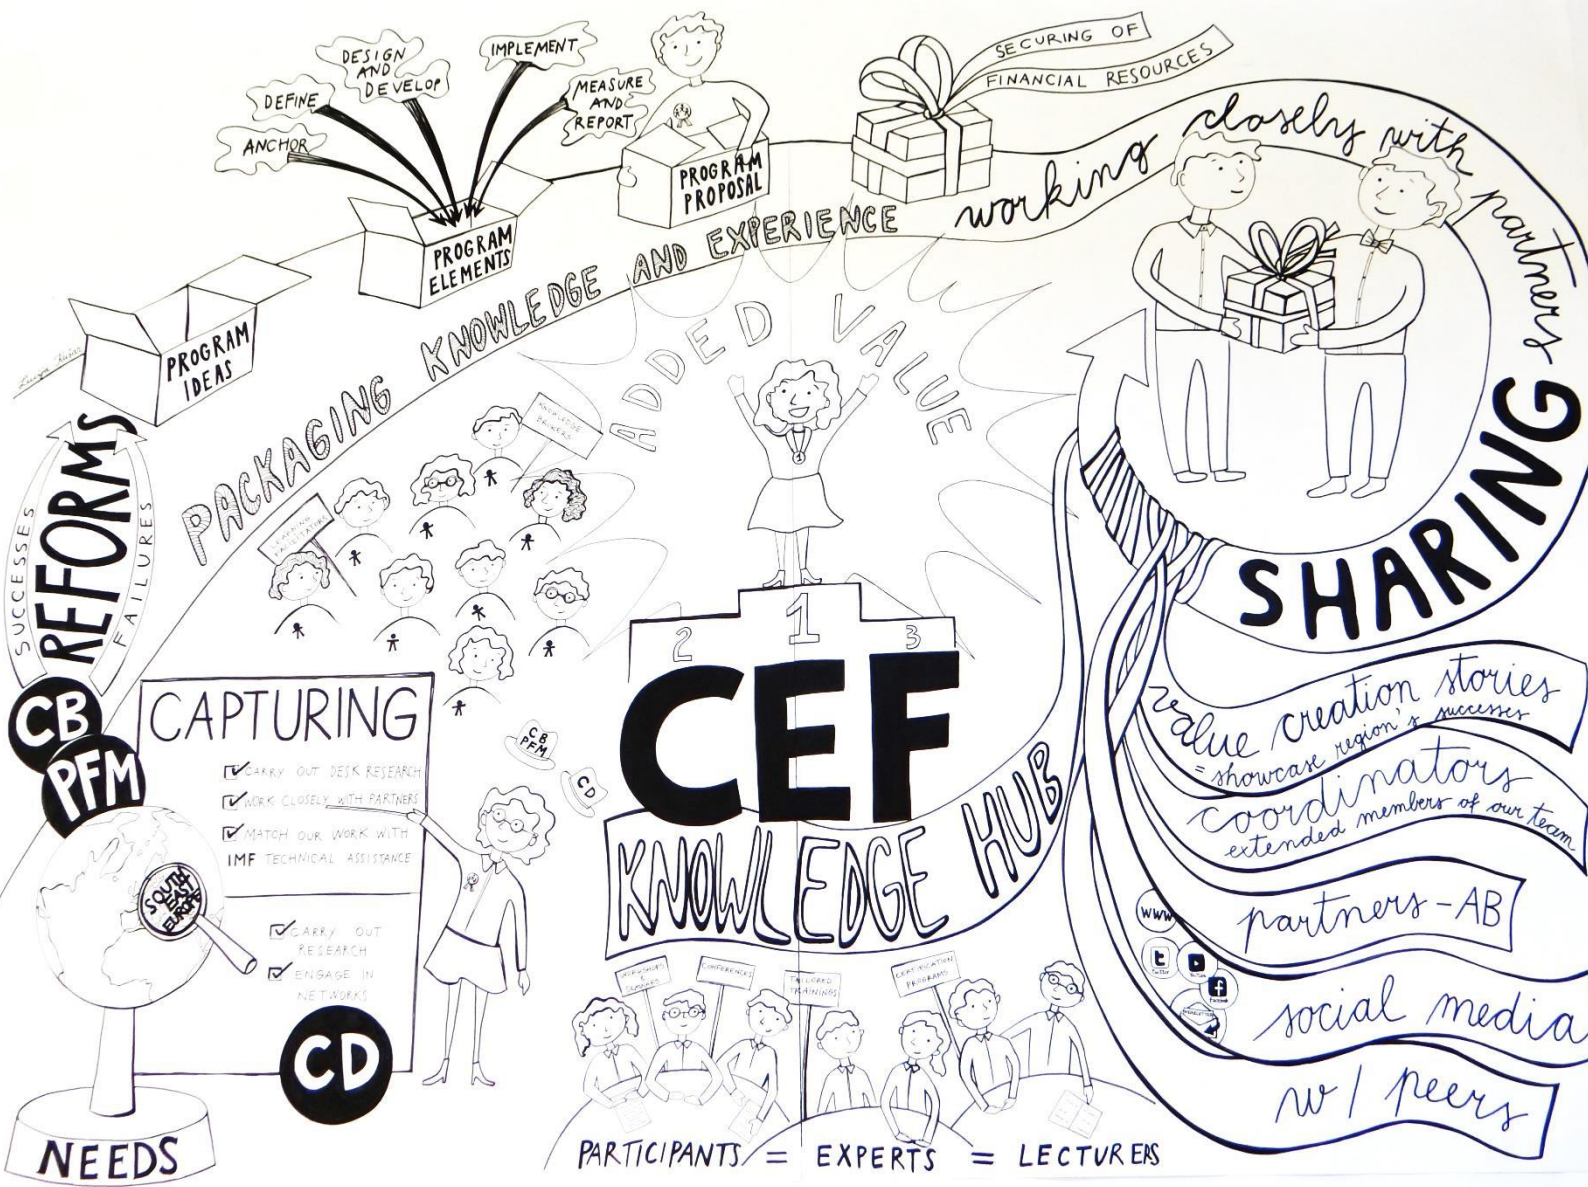 ANCHOR
DEFINE
DESIGN
AND
DEVELOP
IMPLEMENT
MEASURE
AND
REPORT
PROGRAM
IDEAS
PROGRAM
ELEMENTS
PROGRAM
PROPOSAL
SECURING OF
FINANCIAL RESOURCES
PACKAGING KNOWLEDGE AND EXPERIENCE
working closely with partners
SHARING
SUCCESSES
REFORMS
FAILURES
CB
PFM
SOUTH
EAST
EUROPE
NEEDS
CAPTURING
CARRY OUT DESK RESEARCH
WORK CLOSELY WITH PARTNERS
MATCH OUR WORK WITH
IMF TECHNICAL ASSISTANCE
CARRY OUT
RESEARCH
ENGAGE IN
NETWORKS
CD
LEARNING
FACILITATORS
KNOWLEDGE
BROKERS
CB
PFM
CD
ADDED VALUE
1
2
1
3
CEF
KNOWLEDGE HUB
WORKSHOPS
SEMINARS
CONFERENCES
TAILORED
TRAININGS
CERTIFICATION
PROGRAMS
PARTICIPANTS = EXPERTS = LECTURERS
value creation stories
= showcase region's successes
coordinators
extended members of our team
partners - AB
WWW
t
Twitter
YouTube
f
Facebook
NEWSLETTER
social media
w/ peers